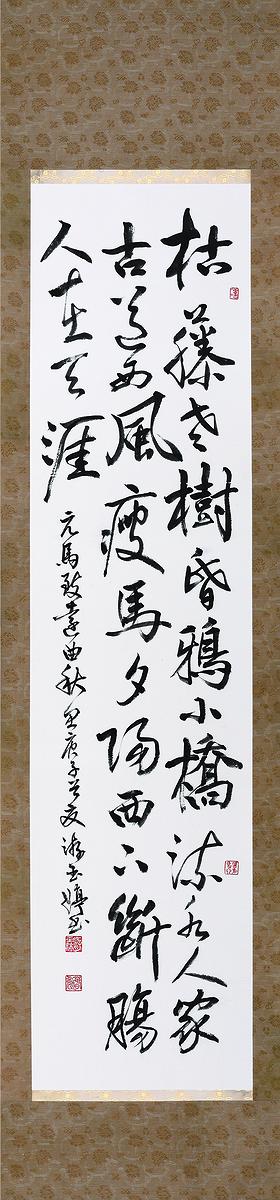 枯藤老樹昏鴉小橋流水人家
古道西風瘦馬夕陽西下斷腸
人在天涯
元馬致遠曲秋思庚子夏游玉婷書